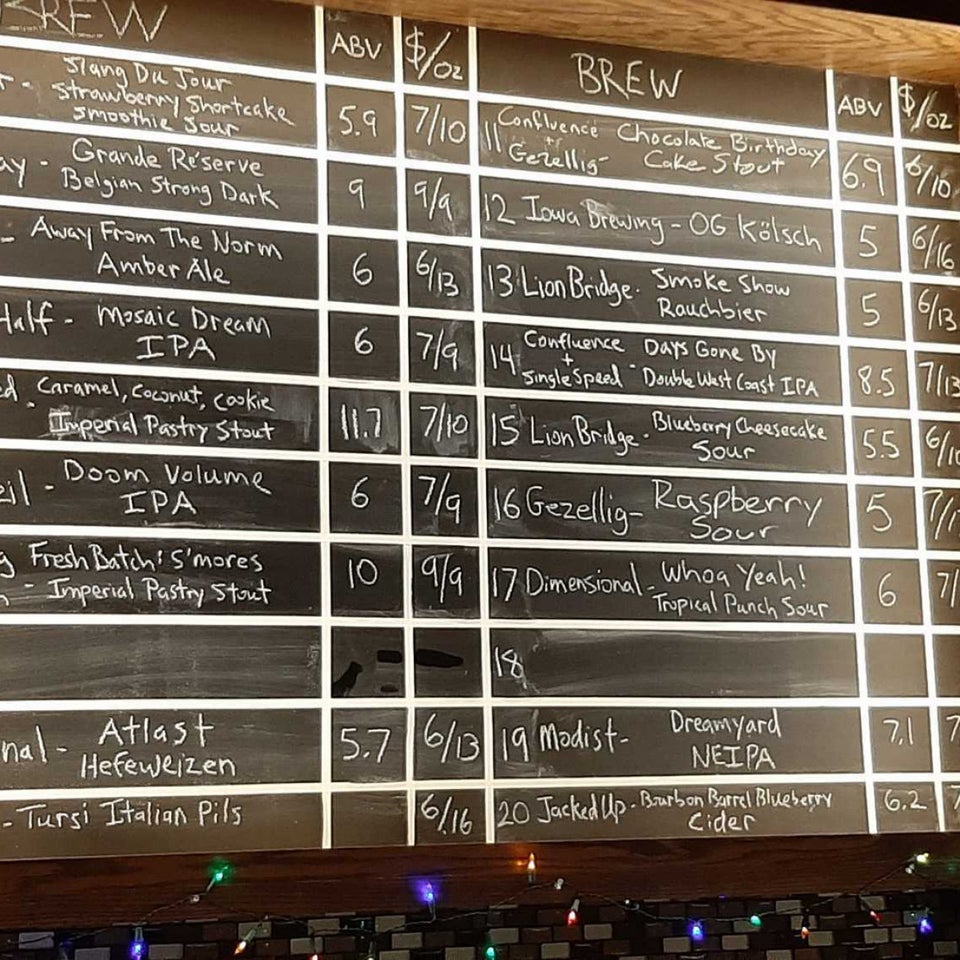 BREW ABV $/oz
Slang Du Jour
Strawberry Shortcake
Smoothie Sour 5.9 7/10
- Grande Réserve
Belgian Strong Dark 9 9/9
- Away From The Norm
Amber Ale 6 6/13
Half - Mosaic Dream
IPA 6 7/9
Caramel, Coconut, Cookie
- Imperial Pastry Stout 11.7 7/10
- Doom Volume
IPA 6 7/9
Fresh Batch: S'mores
- Imperial Pastry Stout 10 9/9
- Atlast
Hefeweizen 5.7 6/13
- Tursi Italian Pils 6/16
BREW ABV $/oz
11 Confluence + Gezellig - Chocolate Birthday
Cake Stout 6.9 6/10
12 Iowa Brewing - OG Kölsch 5 6/16
13 Lion Bridge - Smoke Show
Rauchbier 5 6/13
14 Confluence + Single Speed - Days Gone By
Double West Coast IPA 8.5 7/13
15 Lion Bridge - Blueberry Cheesecake
Sour 5.5 6/10
16 Gezellig - Raspberry
Sour 5 7/
17 Dimensional - Whoa Yeah!
Tropical Punch Sour 6 7/
18
19 Modist - Dreamyard
NEIPA 7.1 7
20 Jacked Up - Bourbon Barrel Blueberry
Cider 6.2 7